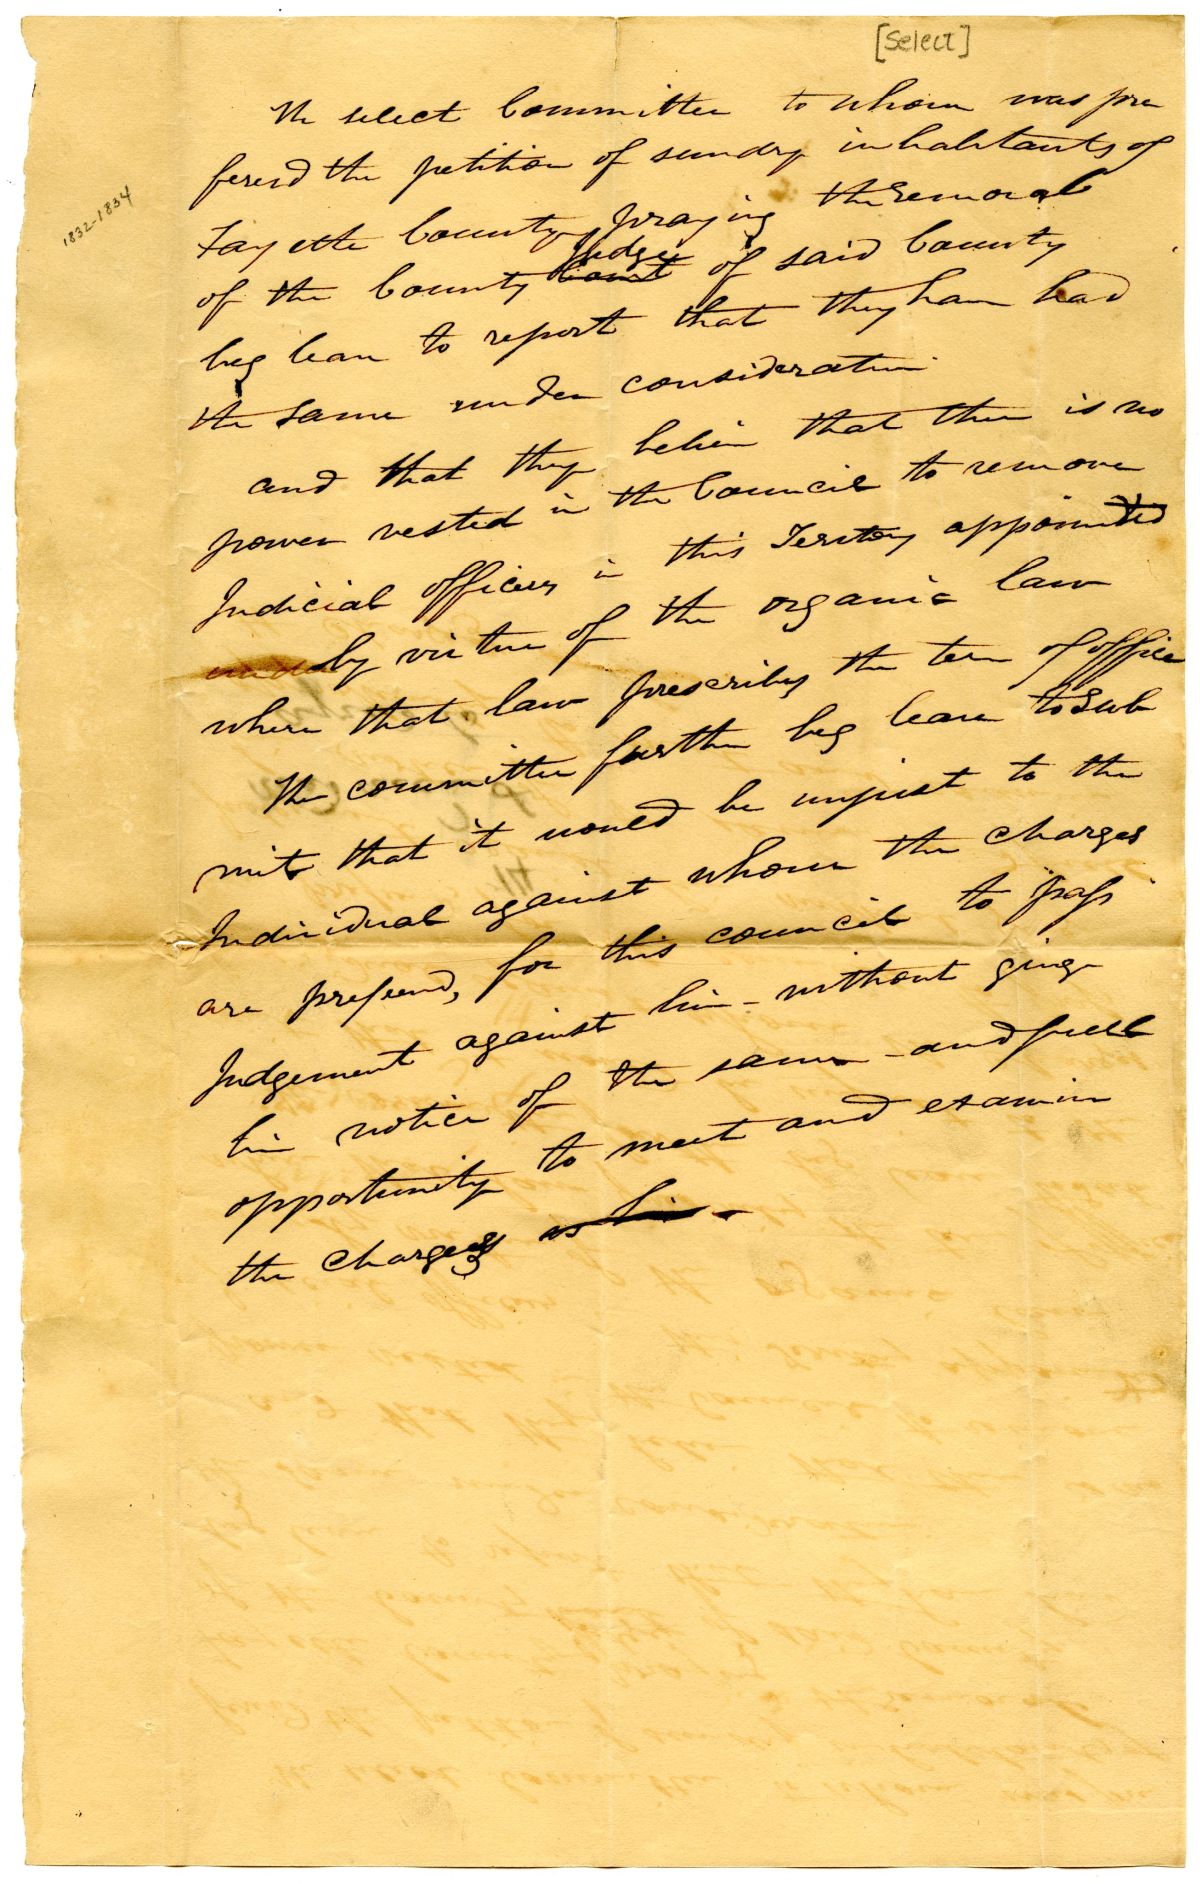 [Select]
The select Committee to whom was pre
fered the petition of sundry inhabitants of
1832-1834
Fayette County praying the removal
Judge
of the County Court of said County
beg leave to report that they have had
the same under consideration
and that they believe that there is no
power vested in the Council to remove
Judicial officers in this Territory appointed
by virtue of the organic law
where that law prescribes the term of office
The committee further beg leave to sub
mit that it would be unjust to the
Individual against whom the charges
are prefered, for this council to pass
Judgement against him - without giving
him notice of the same - and full
opportunity to meet and examine
the charges